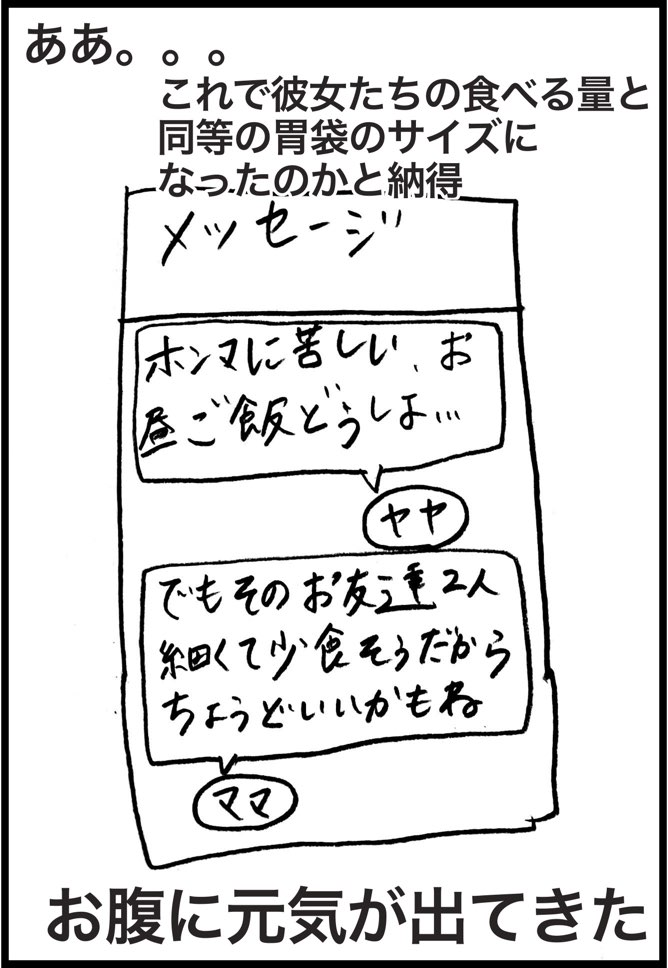 ああ。。。
これで彼女たちの食べる量と
同等の胃袋のサイズに
なったのかと納得
メッセージ
ホンマに苦しい、お
昼ご飯どうしよ...
ヤヤ
でもそのお友達2人
細くて少食そうだから
ちょうどいいかもね
ママ
お腹に元気が出てきた